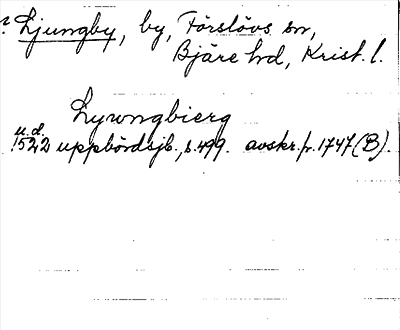 ? Ljungby, by, Förslövs sn,
Bjäre hd, Krist. l.
Lywngbierg
u.d.
1522 uppbördsjb., s. 499. avskr. fr. 1747 (B).